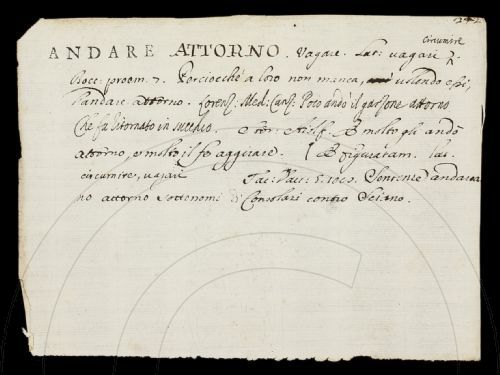 circumire
ANDARE ATTORNO. Vagare. Lat: vagari
Bocc: proem: 7. Perciocchè a loro non manca, volendo essi,
l'andare attorno. Lorenz: Med: Canz: Poco andò il garzone attorno
Che fu ritornato in succhio. E molto gli andò
attorno, e molto il fe aggirare. E figuratam. lat.
circumire, vagari Tac: Dav: Sentenze andava
no attorno sotto nomi di Consolari contro Seiano.